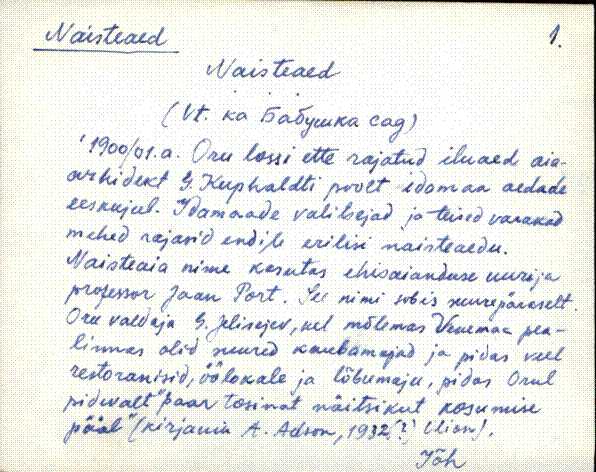 Naisteaed 1.
Naisteaed
(Vt. ka Бабушка сад)
1900/01.a. Oru lossi ette rajatud iluaed aia-
arhidekt G. Kuphaldti poolt idamaa aedade
eeskujul. Idamaade valitsejad ja teised varakad
mehed rajasid endile erilisi naisteaedu.
Naisteaia nime kasutas ehisaianduse uurija
professor Jaan Port. See nimi sobis suurepäraselt.
Oru valdaja G. Jelisejev, kel mõlemas Venemaa pea-
linnas olid suured kaubamajad ja pidas veel
restoranisid, öölokale ja lõbumaju, pidas Orul
pidevalt "paar tosinat näitsikut kosumise
pääl" (kirjanik A. Adson, 1932(?)
Jõh